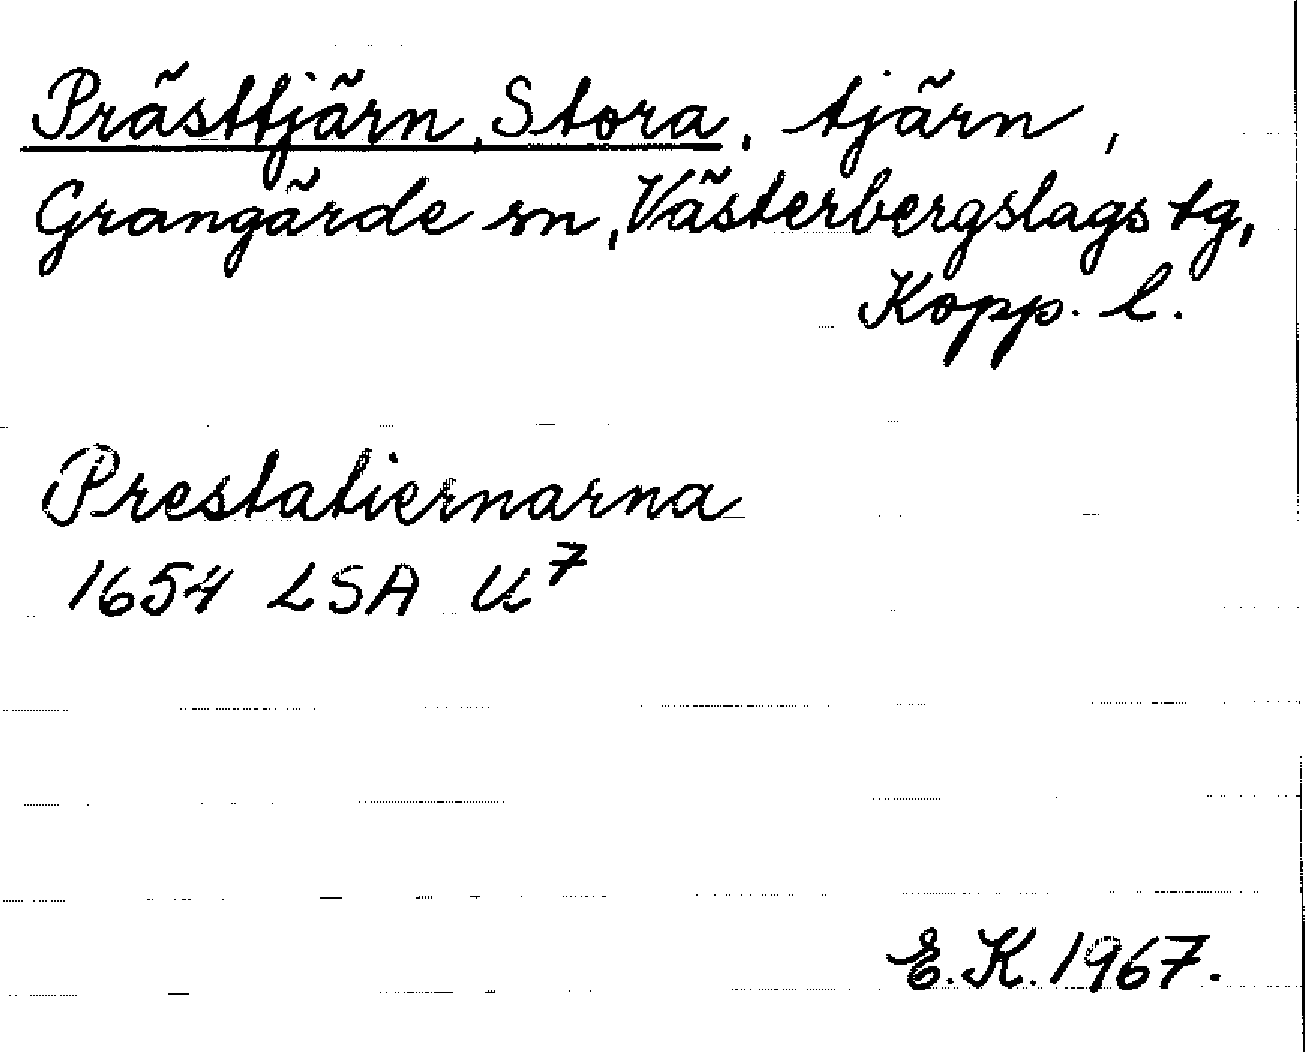 Prästtjärn, Stora, tjärn,
Grangärde sn, Västerbergslags tg,
Kopp. l.
Prestatiernarna
1654 LSA U7
E.K. 1967.